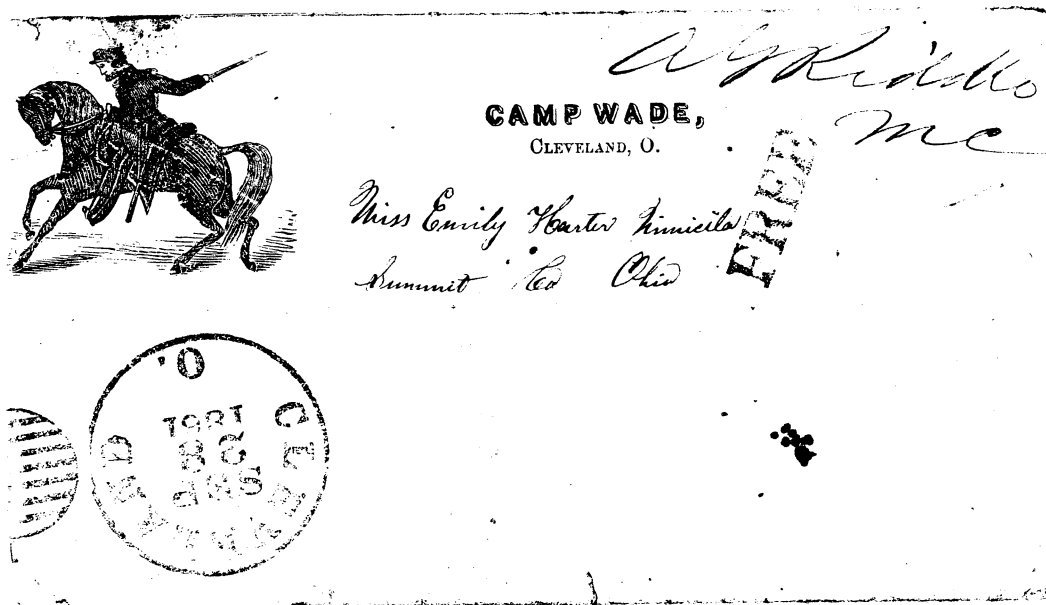 A G Riddle
MC
CAMP WADE,
CLEVELAND, O.
FREE.
Miss Emily Harter Nimicila
Summit Co Ohio
CLEVELAND O.
SEP
28
1861